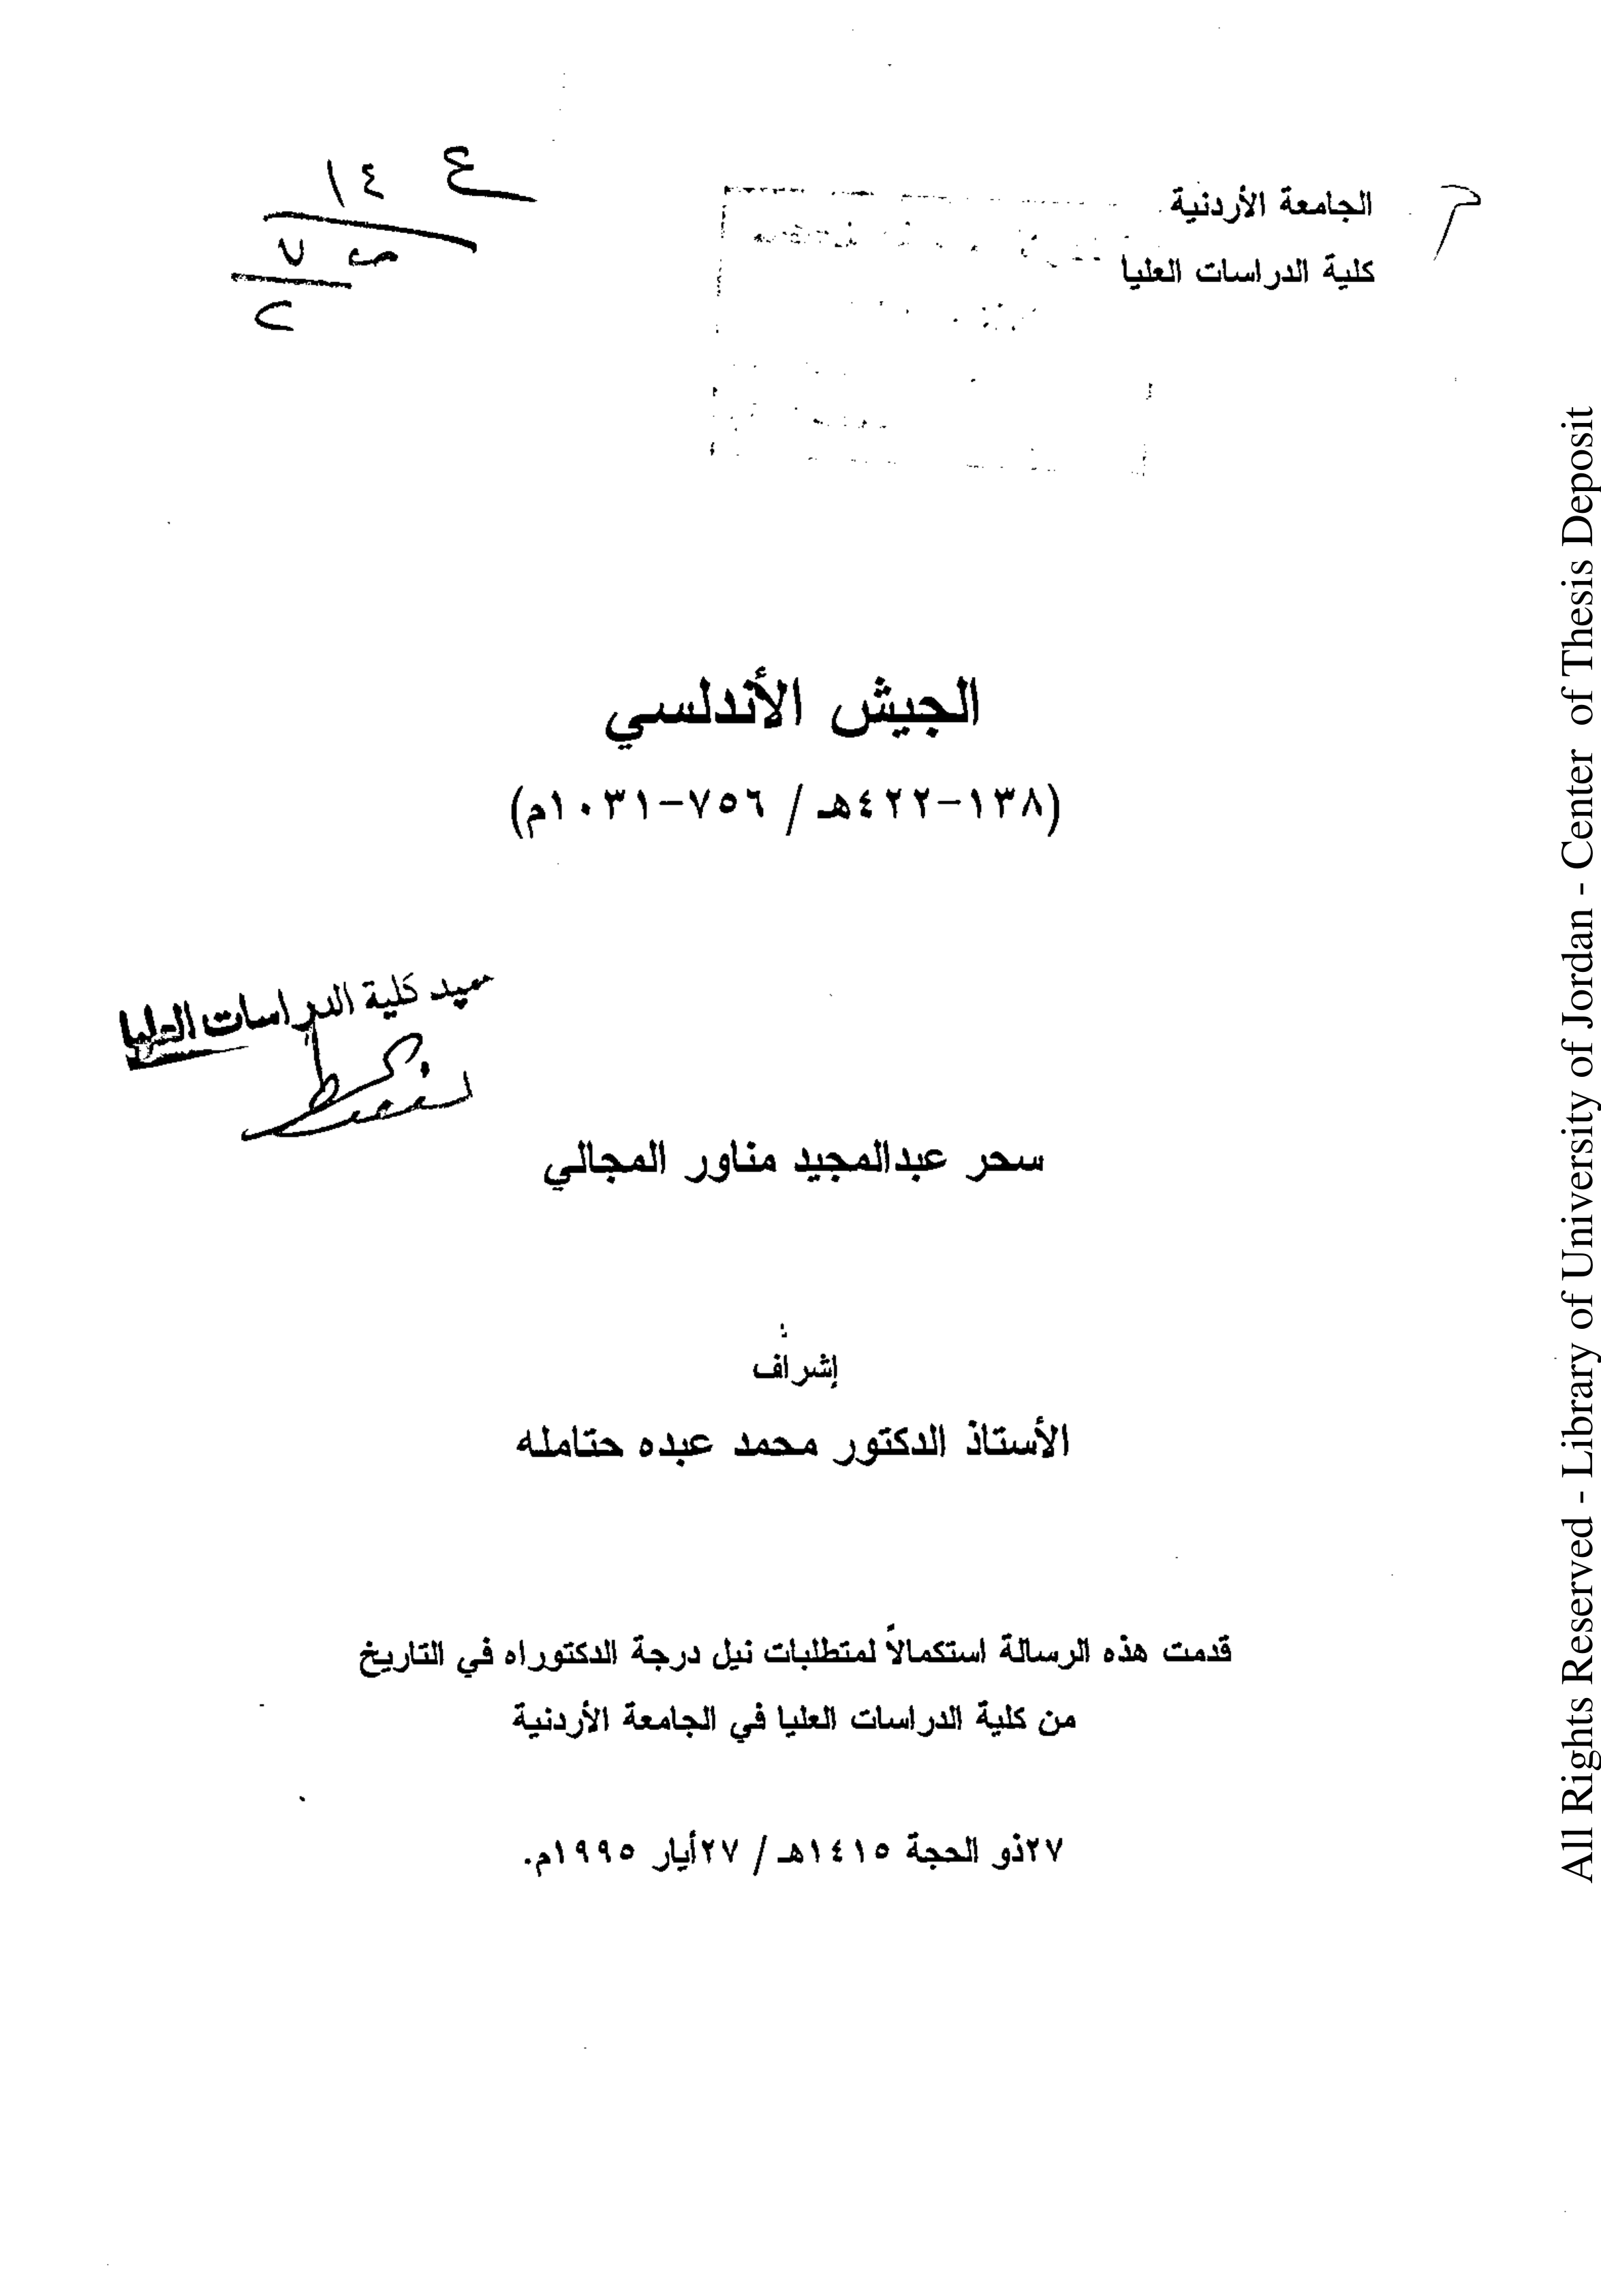 الجامعة الأردنية
كلية الدراسات العليا
الجيش الأندلسي
(١٣٨-٤٢٢هـ / ٧٥٦-١٠٣١م)
عميد كلية الدراسات العليا
سحر عبدالمجيد مناور المجالي
إشراف
الأستاذ الدكتور محمد عبده حتامله
قدمت هذه الرسالة استكمالاً لمتطلبات نيل درجة الدكتوراه في التاريخ
من كلية الدراسات العليا في الجامعة الأردنية
٢٧ذو الحجة ١٤١٥هـ / ٢٧أيار ١٩٩٥م.
All Rights Reserved - Library of University of Jordan - Center of Thesis Deposit